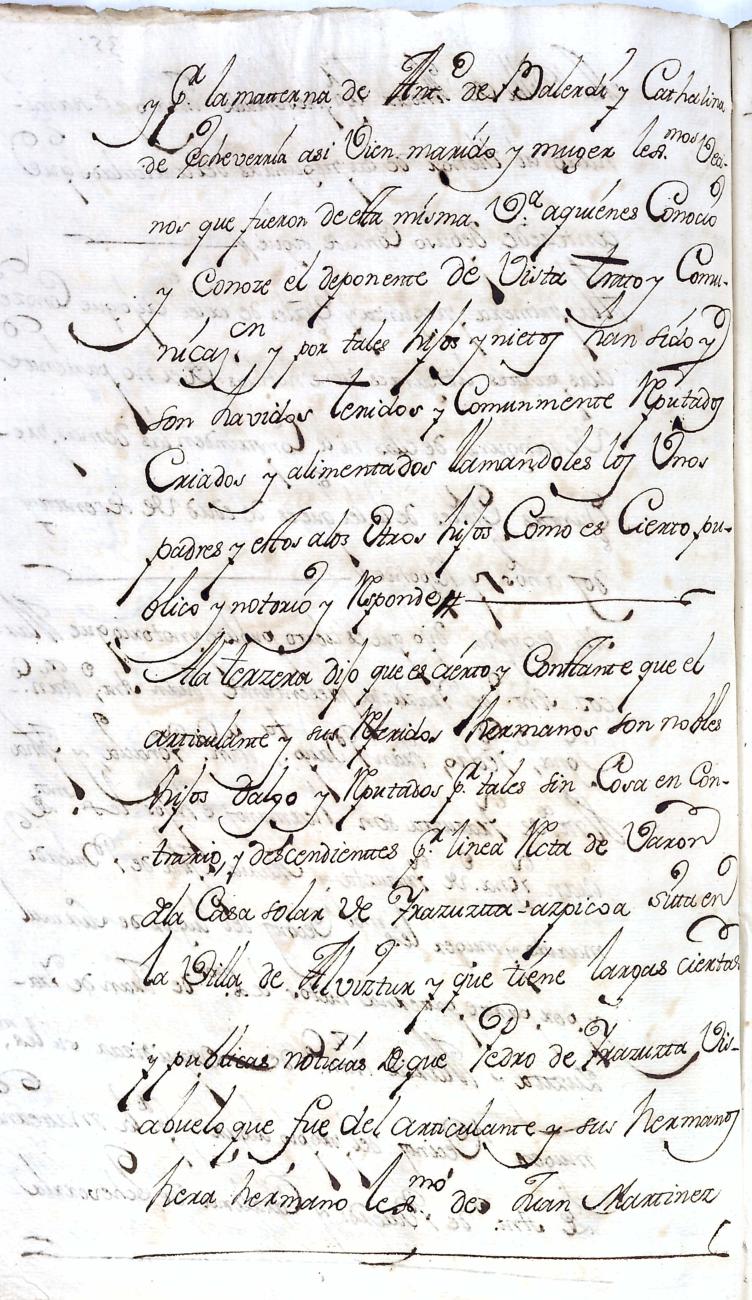 y pr. la matterna de Anto. de Balerdi y Cathalina
de Echeverria asi Vien marido y muger lexmos. Veci-
nos que fueron de esta misma Va. aquienes Conocio
y Conoze el deponente de Vista trato y Comu-
nicazcn y por tales hijos y nietos han sido y
son havidos tenidos y Comunmente Rputados
Criados y alimentados llamandoles los Unos
padres y estos alos Otros hijos Como es Cierto pu-
blico y notorio y Rsponde
Ala terzera dijo que es cierto y Constante que el
articulante y sus Rferidos hermanos son nobles
hijos dalgo y Rputados pr. tales sin Cosa en Con-
trario, y descendienttes pr. linea Rcta de Varon
dela Casa solar de Yrazuztta-azpicoa sitta en
la Villa de Alviztur y que tiene largas ciertas
y publicas noticias de que Pedro de Yrazuzta Vis-
abuelo que fue del articulante y sus hermanos
hera hermano lexmo. de Juan Martinez